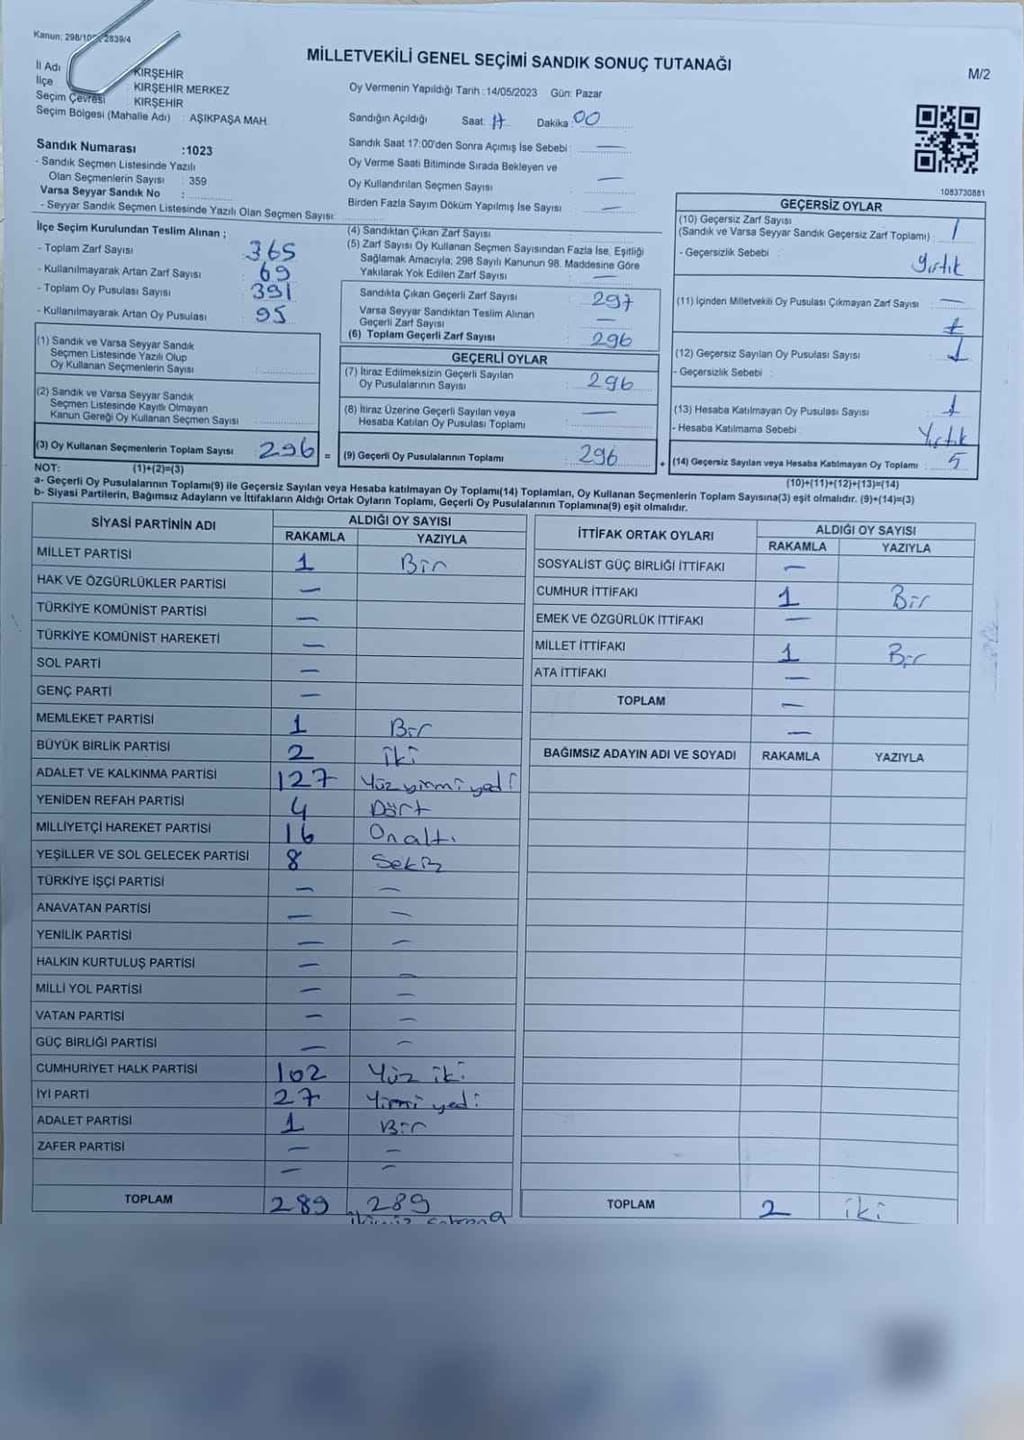 Kanun: 298/105, 2839/4
MİLLETVEKİLİ GENEL SEÇİMİ SANDIK SONUÇ TUTANAĞI
M/2
İl Adı KIRŞEHİR
İlçe KIRŞEHİR MERKEZ
Seçim Çevresi KIRŞEHİR
Seçim Bölgesi (Mahalle Adı) : AŞIKPAŞA MAH.
Sandık Numarası :1023
- Sandık Seçmen Listesinde Yazılı
Olan Seçmenlerin Sayısı : 359
Varsa Seyyar Sandık No :
- Seyyar Sandık Seçmen Listesinde Yazılı Olan Seçmen Sayısı:
Oy Vermenin Yapıldığı Tarih :14/05/2023 Gün: Pazar
Sandığın Açıldığı Saat: 17 Dakika: 00
Sandık Saat 17:00'den Sonra Açımış İse Sebebi : —
Oy Verme Saati Bitiminde Sırada Bekleyen ve
Oy Kullandırılan Seçmen Sayısı : —
Birden Fazla Sayım Döküm Yapılmış İse Sayısı : —
1083730881
İlçe Seçim Kurulundan Teslim Alınan ;
- Toplam Zarf Sayısı : 365
- Kullanılmayarak Artan Zarf Sayısı : 69
- Toplam Oy Pusulası Sayısı : 391
- Kullanılmayarak Artan Oy Pusulası : 95
(1) Sandık ve Varsa Seyyar Sandık
Seçmen Listesinde Yazılı Olup
Oy Kullanan Seçmenlerin Sayısı :
(2) Sandık ve Varsa Seyyar Sandık
Seçmen Listesinde Kayıtlı Olmayan
Kanun Gereği Oy Kullanan Seçmen Sayısı :
(3) Oy Kullanan Seçmenlerin Toplam Sayısı : 296 =
(4) Sandıktan Çıkan Zarf Sayısı :
(5) Zarf Sayısı Oy Kullanan Seçmen Sayısından Fazla İse, Eşitliği
Sağlamak Amacıyla; 298 Sayılı Kanunun 98. Maddesine Göre
Yakılarak Yok Edilen Zarf Sayısı : —
Sandıkta Çıkan Geçerli Zarf Sayısı : 297
Varsa Seyyar Sandıktan Teslim Alınan
Geçerli Zarf Sayısı : —
(6) Toplam Geçerli Zarf Sayısı : 296
GEÇERLİ OYLAR
(7) İtiraz Edilmeksizin Geçerli Sayılan
Oy Pusulalarının Sayısı : 296
(8) İtiraz Üzerine Geçerli Sayılan veya
Hesaba Katılan Oy Pusulası Toplamı : —
(9) Geçerli Oy Pusulalarının Toplamı : 296 +
GEÇERSİZ OYLAR
(10) Geçersiz Zarf Sayısı
(Sandık ve Varsa Seyyar Sandık Geçersiz Zarf Toplamı) : 1
- Geçersizlik Sebebi : Yırtık
(11) İçinden Milletvekili Oy Pusulası Çıkmayan Zarf Sayısı : —
(12) Geçersiz Sayılan Oy Pusulası Sayısı : 1
- Geçersizlik Sebebi :
(13) Hesaba Katılmayan Oy Pusulası Sayısı : 1
- Hesaba Katılmama Sebebi : Yırtık
(14) Geçersiz Sayılan veya Hesaba Katılmayan Oy Toplamı : 5
NOT: (1)+(2)=(3)
(10)+(11)+(12)+(13)=(14)
a- Geçerli Oy Pusulalarının Toplamı(9) ile Geçersiz Sayılan veya Hesaba katılmayan Oy Toplamı(14) Toplamları, Oy Kullanan Seçmenlerin Toplam Sayısına(3) eşit olmalıdır. (9)+(14)=(3)
b- Siyasi Partilerin, Bağımsız Adayların ve İttifakların Aldığı Ortak Oyların Toplamı, Geçerli Oy Pusulalarının Toplamına(9) eşit olmalıdır.
SİYASİ PARTİNİN ADI ALDIĞI OY SAYISI
RAKAMLA YAZIYLA
MİLLET PARTİSİ 1 Bir
HAK VE ÖZGÜRLÜKLER PARTİSİ —
TÜRKİYE KOMÜNİST PARTİSİ —
TÜRKİYE KOMÜNİST HAREKETİ —
SOL PARTİ —
GENÇ PARTİ —
MEMLEKET PARTİSİ 1 Bir
BÜYÜK BİRLİK PARTİSİ 2 iki
ADALET VE KALKINMA PARTİSİ 127 Yüzyirmiyedi
YENİDEN REFAH PARTİSİ 4 Dört
MİLLİYETÇİ HAREKET PARTİSİ 16 Onaltı
YEŞİLLER VE SOL GELECEK PARTİSİ 8 Sekiz
TÜRKİYE İŞÇİ PARTİSİ — —
ANAVATAN PARTİSİ — —
YENİLİK PARTİSİ — —
HALKIN KURTULUŞ PARTİSİ — —
MİLLİ YOL PARTİSİ — —
VATAN PARTİSİ — —
GÜÇ BİRLİĞİ PARTİSİ — —
CUMHURİYET HALK PARTİSİ 102 Yüz iki
İYİ PARTİ 27 Yirmi yedi
ADALET PARTİSİ 1 Bir
ZAFER PARTİSİ — —
— —
TOPLAM 289 289
İTTİFAK ORTAK OYLARI ALDIĞI OY SAYISI
RAKAMLA YAZIYLA
SOSYALİST GÜÇ BİRLİĞİ İTTİFAKI —
CUMHUR İTTİFAKI 1 Bir
EMEK VE ÖZGÜRLÜK İTTİFAKI —
MİLLET İTTİFAKI 1 Bir
ATA İTTİFAKI —
TOPLAM —
—
BAĞIMSIZ ADAYIN ADI VE SOYADI RAKAMLA YAZIYLA
TOPLAM 2 iki